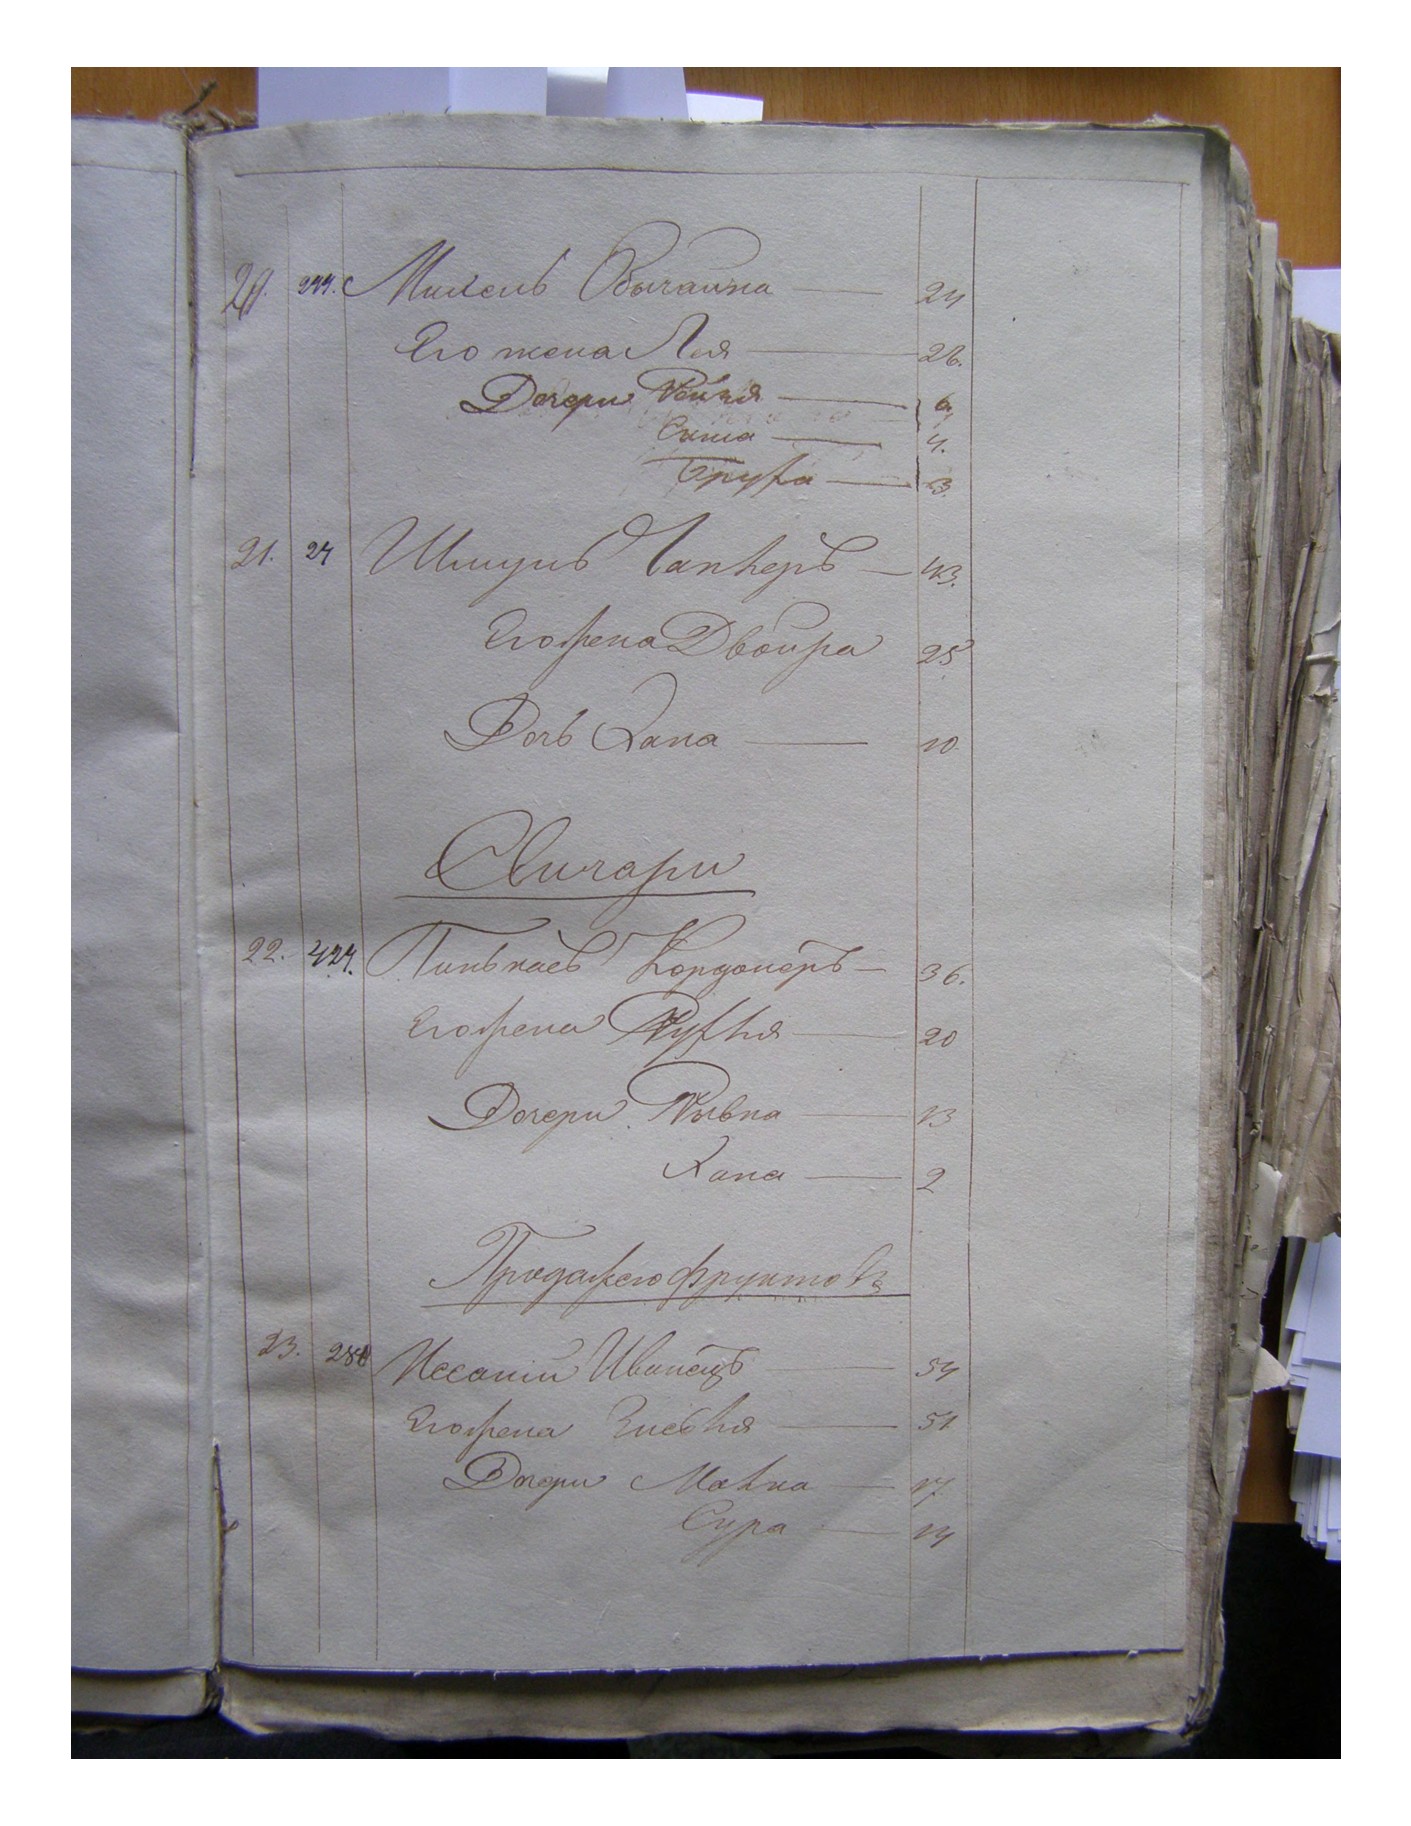 20. Михель Обычайка — 24
Его жена Лея — 26.
Дочери Рейзя — 6
Сима — 4.
Груха — 3.
21. 24 Шмуль Чапкеръ — 43.
Его жена Двойра 25
Дочь Хана — 10
Свичари
22. 424. Пинькасъ Кордонеръ — 36.
Его жена Рухля — 20
Дочери Рывка — 13
Хана — 2
Продажею фруктовъ
23. Иванецъ — 54
Его жена — 51
Дочери Малка — 17.
Сура — 14